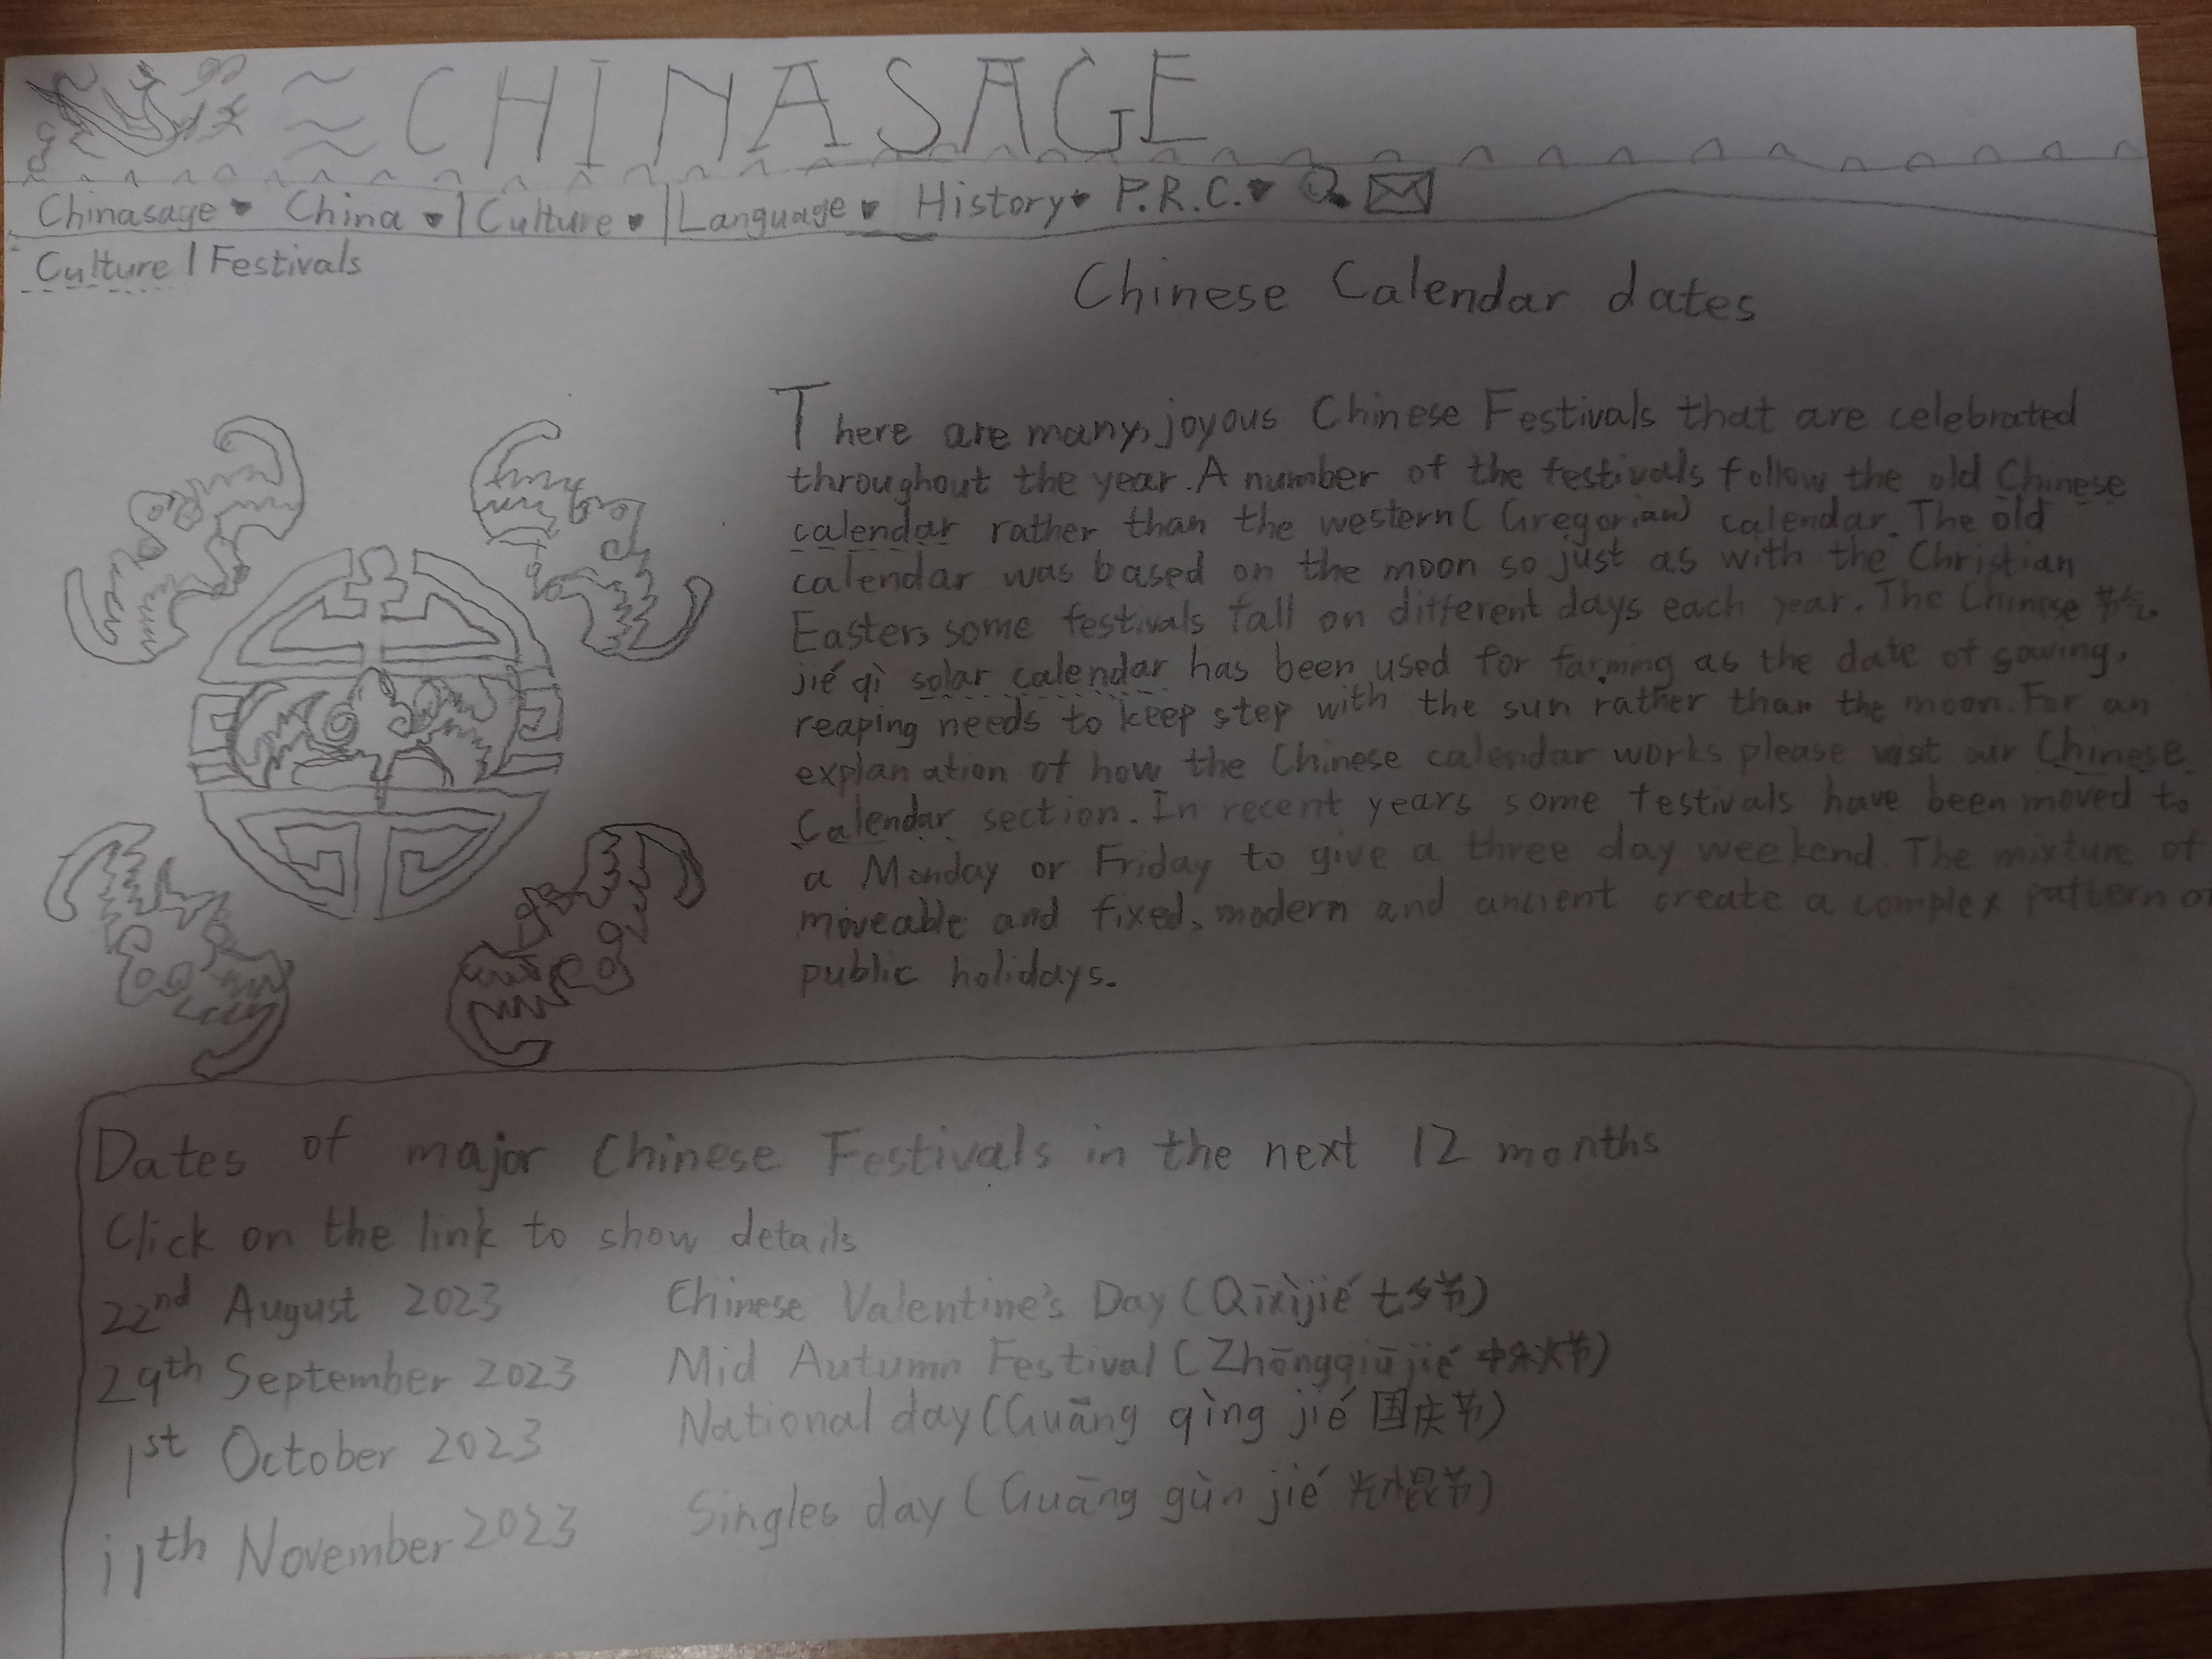 CHINASAGE
Chinasage China Culture Language History P.R.C.
Culture | Festivals
Chinese Calendar dates
There are many, joyous Chinese Festivals that are celebrated
throughout the year. A number of the festivals follow the old Chinese
calendar rather than the western (Gregorian) calendar. The old
calendar was based on the moon so just as with the Christian
Easter, some festivals fall on different days each year. The Chinese 节气
jié qì solar calendar has been used for farming as the date of sowing,
reaping needs to keep step with the sun rather than the moon. For an
explanation of how the Chinese calendar works please visit our Chinese
Calendar section. In recent years some festivals have been moved to
a Monday or Friday to give a three day weekend. The mixture of
moveable and fixed, modern and ancient create a complex pattern of
public holidays.
Dates of major Chinese Festivals in the next 12 months
Click on the link to show details
22nd August 2023 Chinese Valentine's Day (Qīxìjié 七夕节)
29th September 2023 Mid Autumn Festival (Zhōngqiūjié 中秋节)
1st October 2023 National day (Guāng qìng jié 国庆节)
11th November 2023 Singles day (Guāng gùn jié 光棍节)